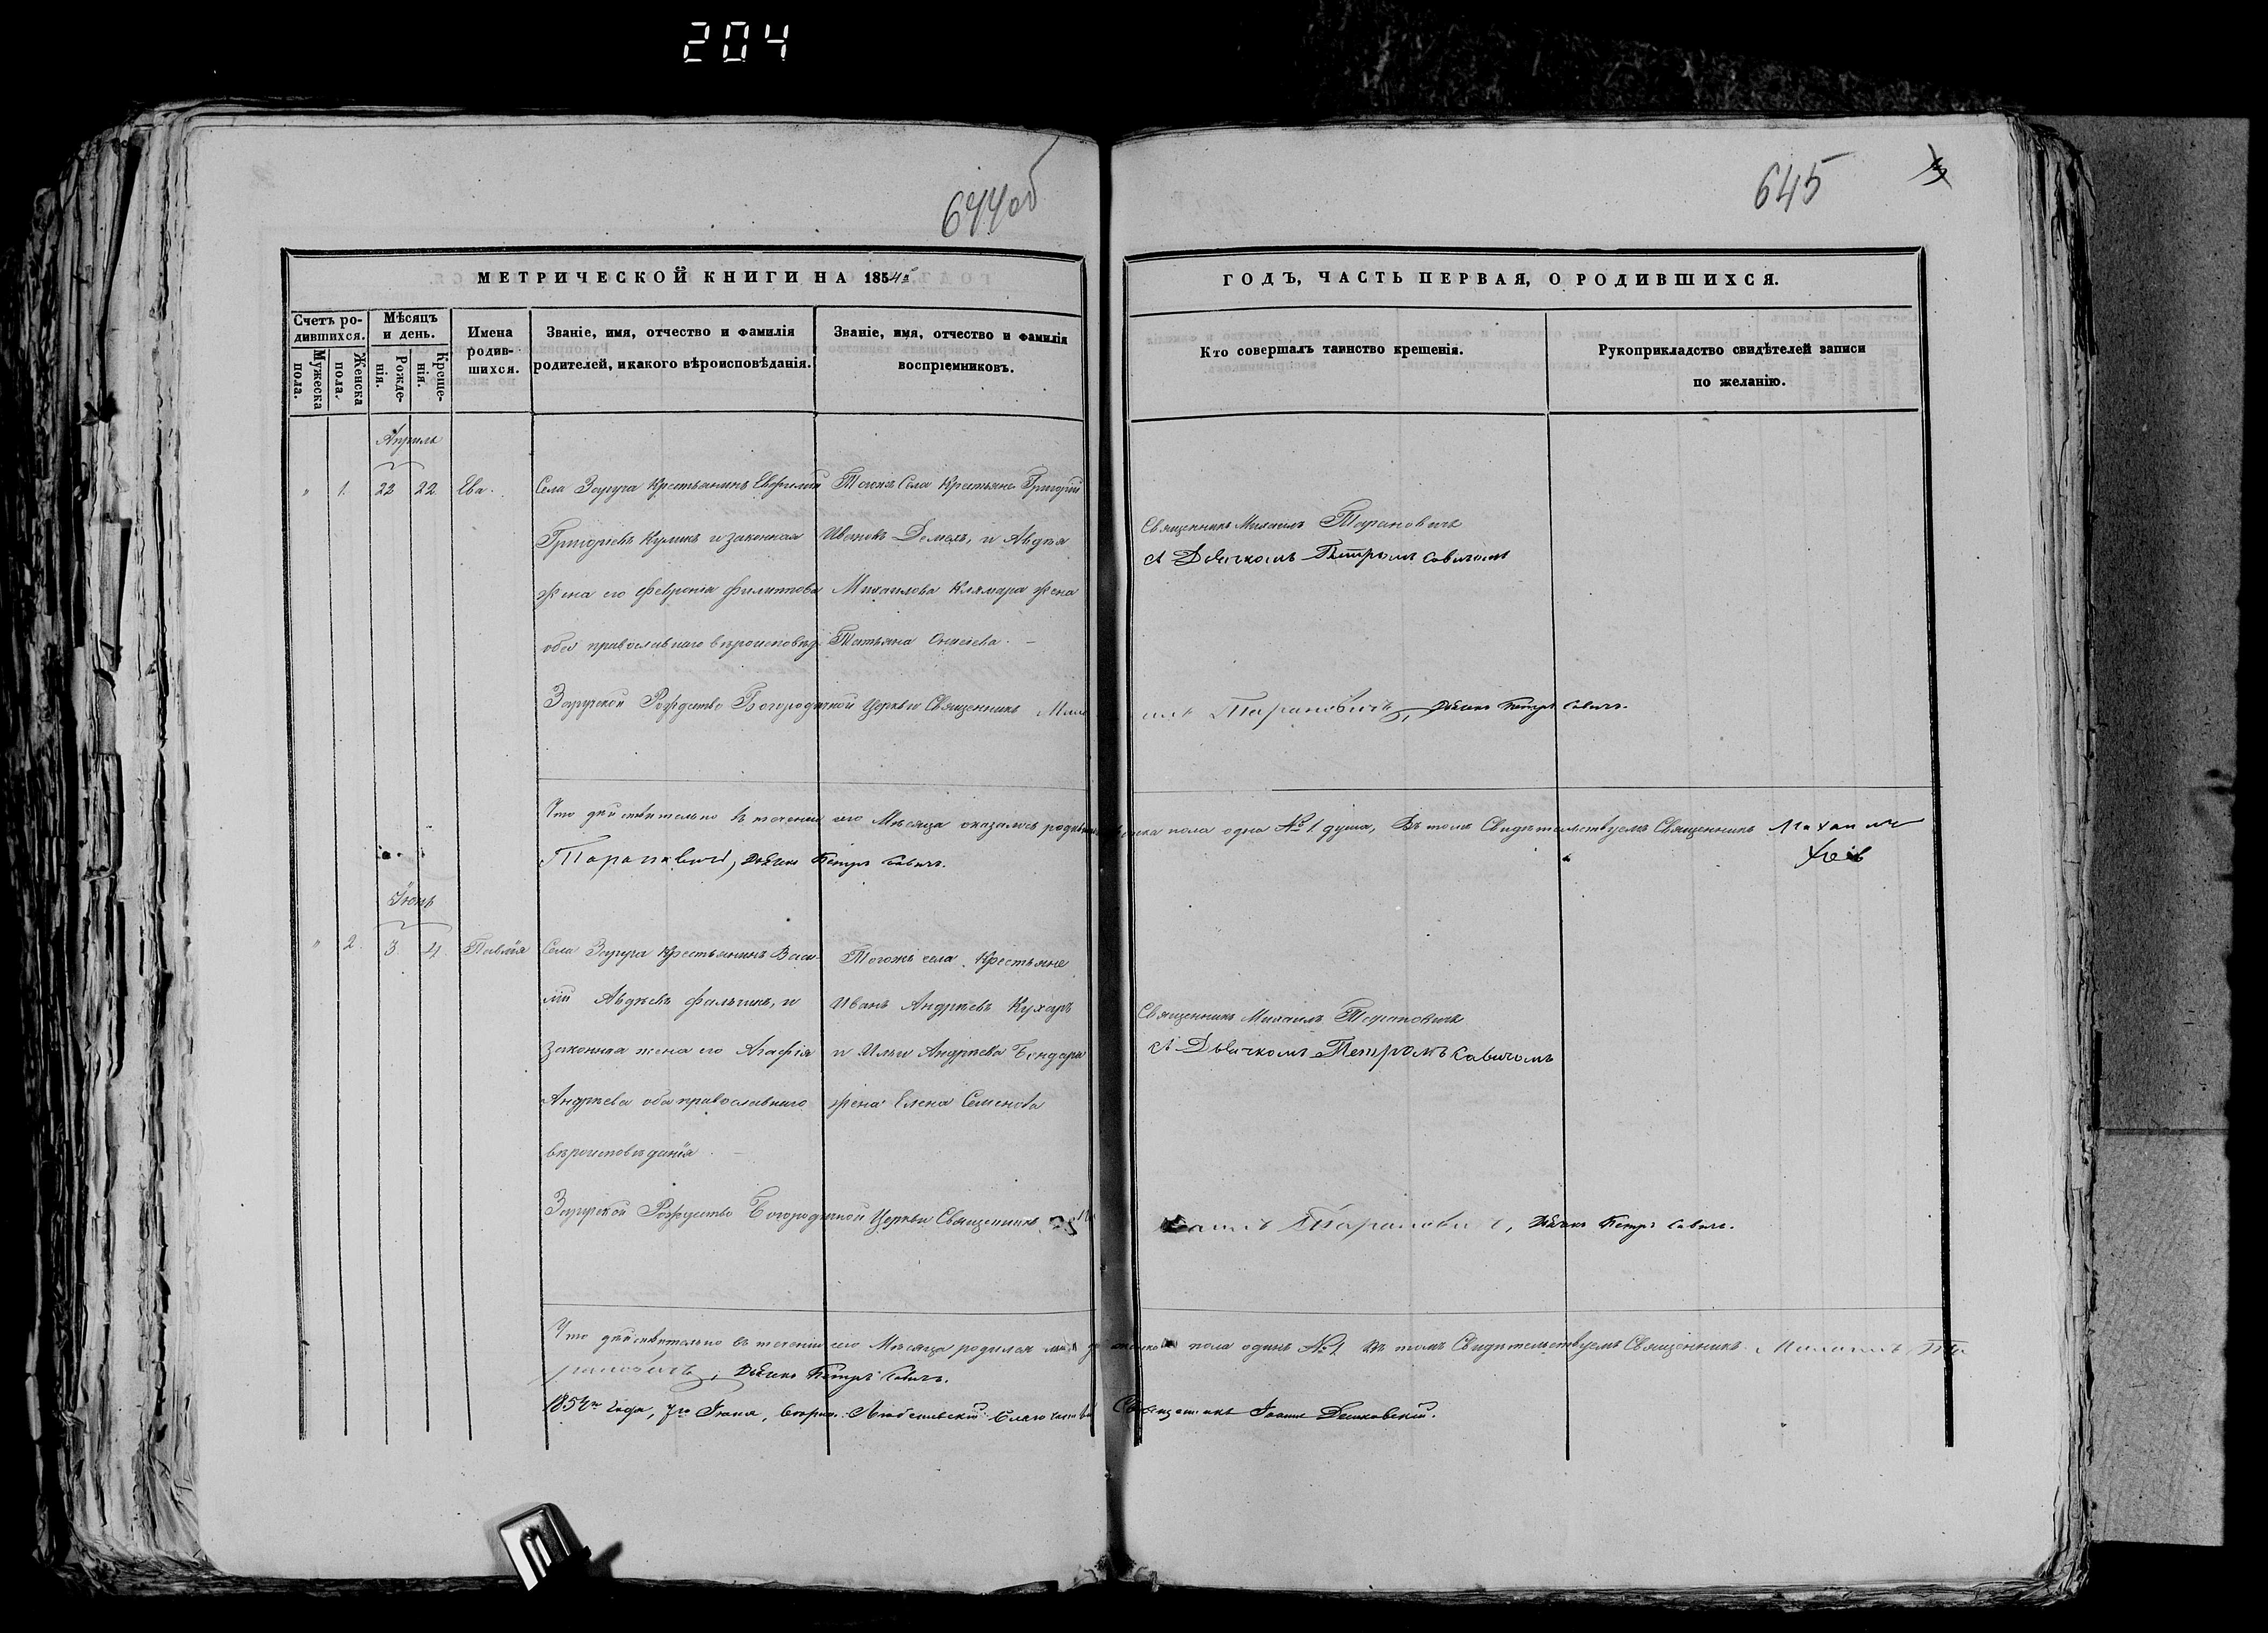 204
644об
645
МЕТРИЧЕСКОЙ КНИГИ НА 1854й
ГОДЪ, ЧАСТЬ ПЕРВАЯ, О РОДИВШИХСЯ.
Счетъ ро-
дившихся.
Мужеска
пола.
Женска
пола.
Мѣсяцъ
и день.
Рожде-
нія.
Креще-
нія.
Имена
родив-
шихся.
Званіе, имя, отчество и фамилія
родителей, и какого вѣроисповѣданія.
Званіе, имя, отчество и фамилія
воспріемниковъ.
Кто совершалъ таинство крещенія.
Рукоприкладство свидѣтелей записи
по желанію.
Апрѣль
" 1. 22 22. Ева.
Села Заруга Крестьянинъ Евфимій
Григоріевъ Куликъ и законная
жена его Февронія Филиппова
оба православнаго вѣроисповѣд.
Тогожъ Села Крестьяне Григорій
Ивановъ Демахъ, и Авдѣя
Михаилова Клямара жена
Татьяна
Священникъ Михаилъ Тарановичъ
съ Дьячкомъ Петромъ Савичомъ
Заругской Рождество Богородичной Церкви Священникъ Миха
илъ Тарановичъ, Дьячекъ Петръ Савичъ.
Что дѣйствительно въ теченіи сего Мѣсяца оказалось пола одна №1. душа, Въ томъ Свидѣтельствуемъ Священникъ Михаилъ
Тарановичъ, Дьячекъ Петръ Савичъ.
Іюнь
" 2. 3. 4. Павлія
Села Заруга Крестьянинъ Васи-
лій Авдѣевъ Фальчикъ, и
законная жена его Агафія
Андрѣева оба православнаго
вѣроисповѣданія.
Тогожъ села Крестьяне
Иванъ Андрѣевъ Кухаръ
и Ильи Андрѣева Бондара
жена Елена Семенова
Священникъ Михаилъ Тарановичъ
съ Дьячкомъ Петромъ Савичомъ
Заругской Рождество Богородичной Церкви Священникъ
Тарановичъ, Дьячекъ Петръ Савичъ.
Что дѣйствительно въ теченіи сего Мѣсяца родился пола одинъ №1. въ томъ Свидѣтельствуемъ Священникъ Михаилъ Та
рановичъ, Дьячекъ Петръ Савичъ.
1854го года, 7го Іюня, Священникъ Іоаннъ